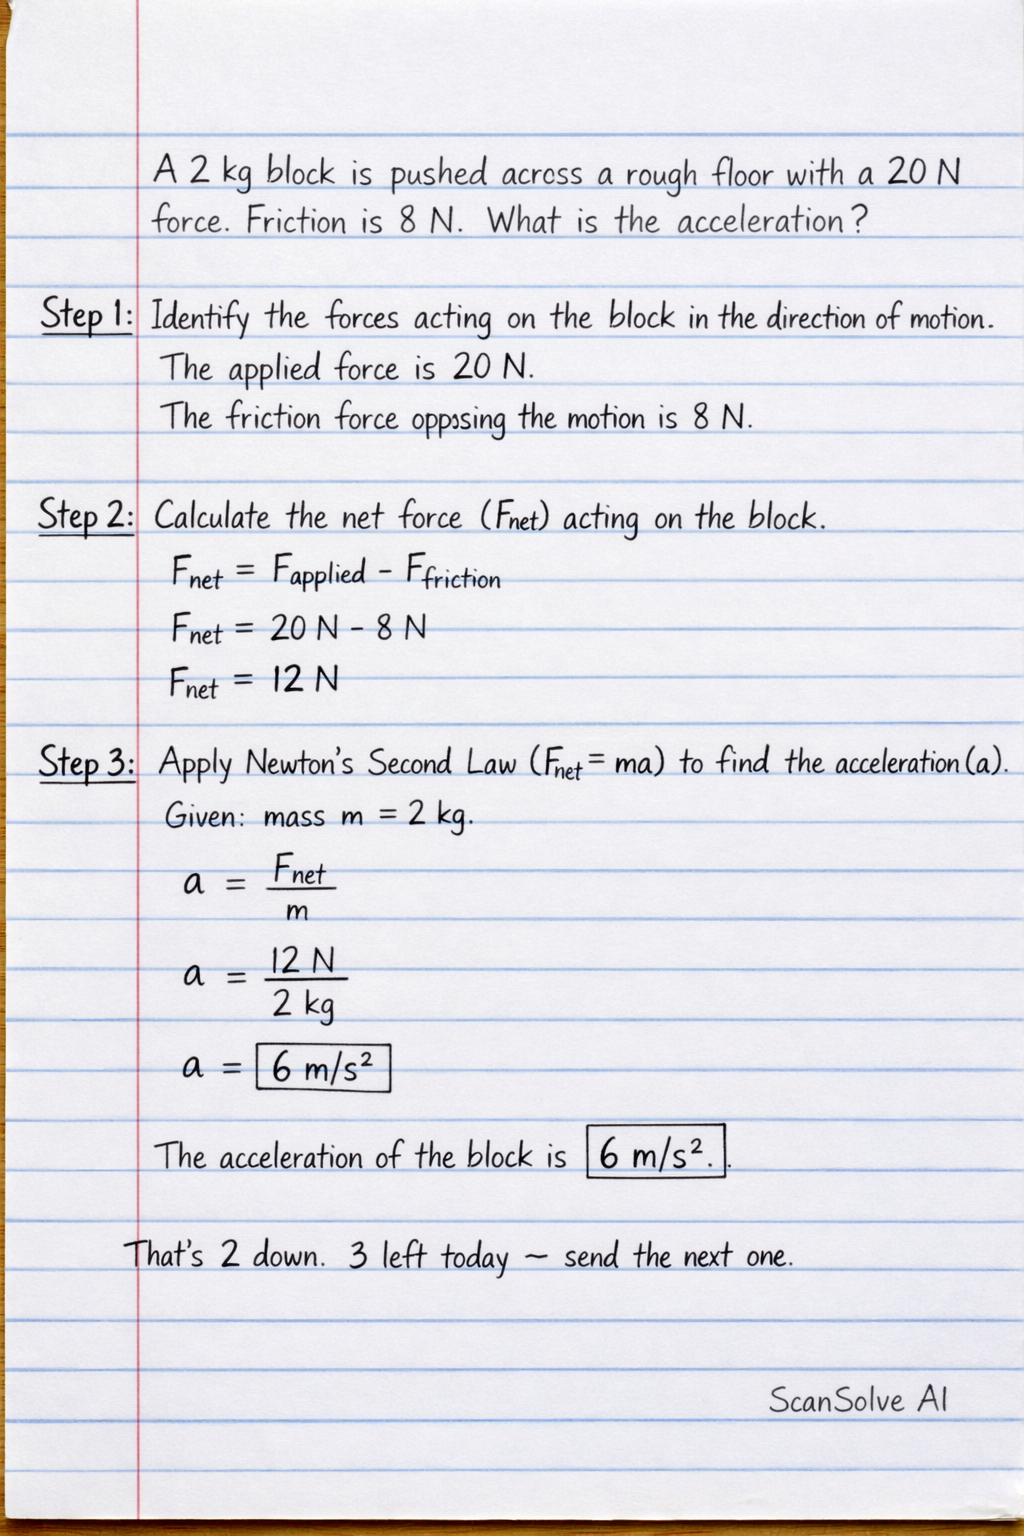 A 2 kg block is pushed across a rough floor with a 20 N
force. Friction is 8 N. What is the acceleration?
Step 1: Identify the forces acting on the block in the direction of motion.
The applied force is 20 N.
The friction force opposing the motion is 8 N.
Step 2: Calculate the net force (Fnet) acting on the block.
Fnet = Fapplied - Ffriction
Fnet = 20 N - 8 N
Fnet = 12 N
Step 3: Apply Newton's Second Law (Fnet = ma) to find the acceleration (a).
Given: mass m = 2 kg.
a = Fnet
m
a = 12 N
2 kg
a = 6 m/s²
The acceleration of the block is 6 m/s². .
That's 2 down. 3 left today ~ send the next one.
ScanSolve AI